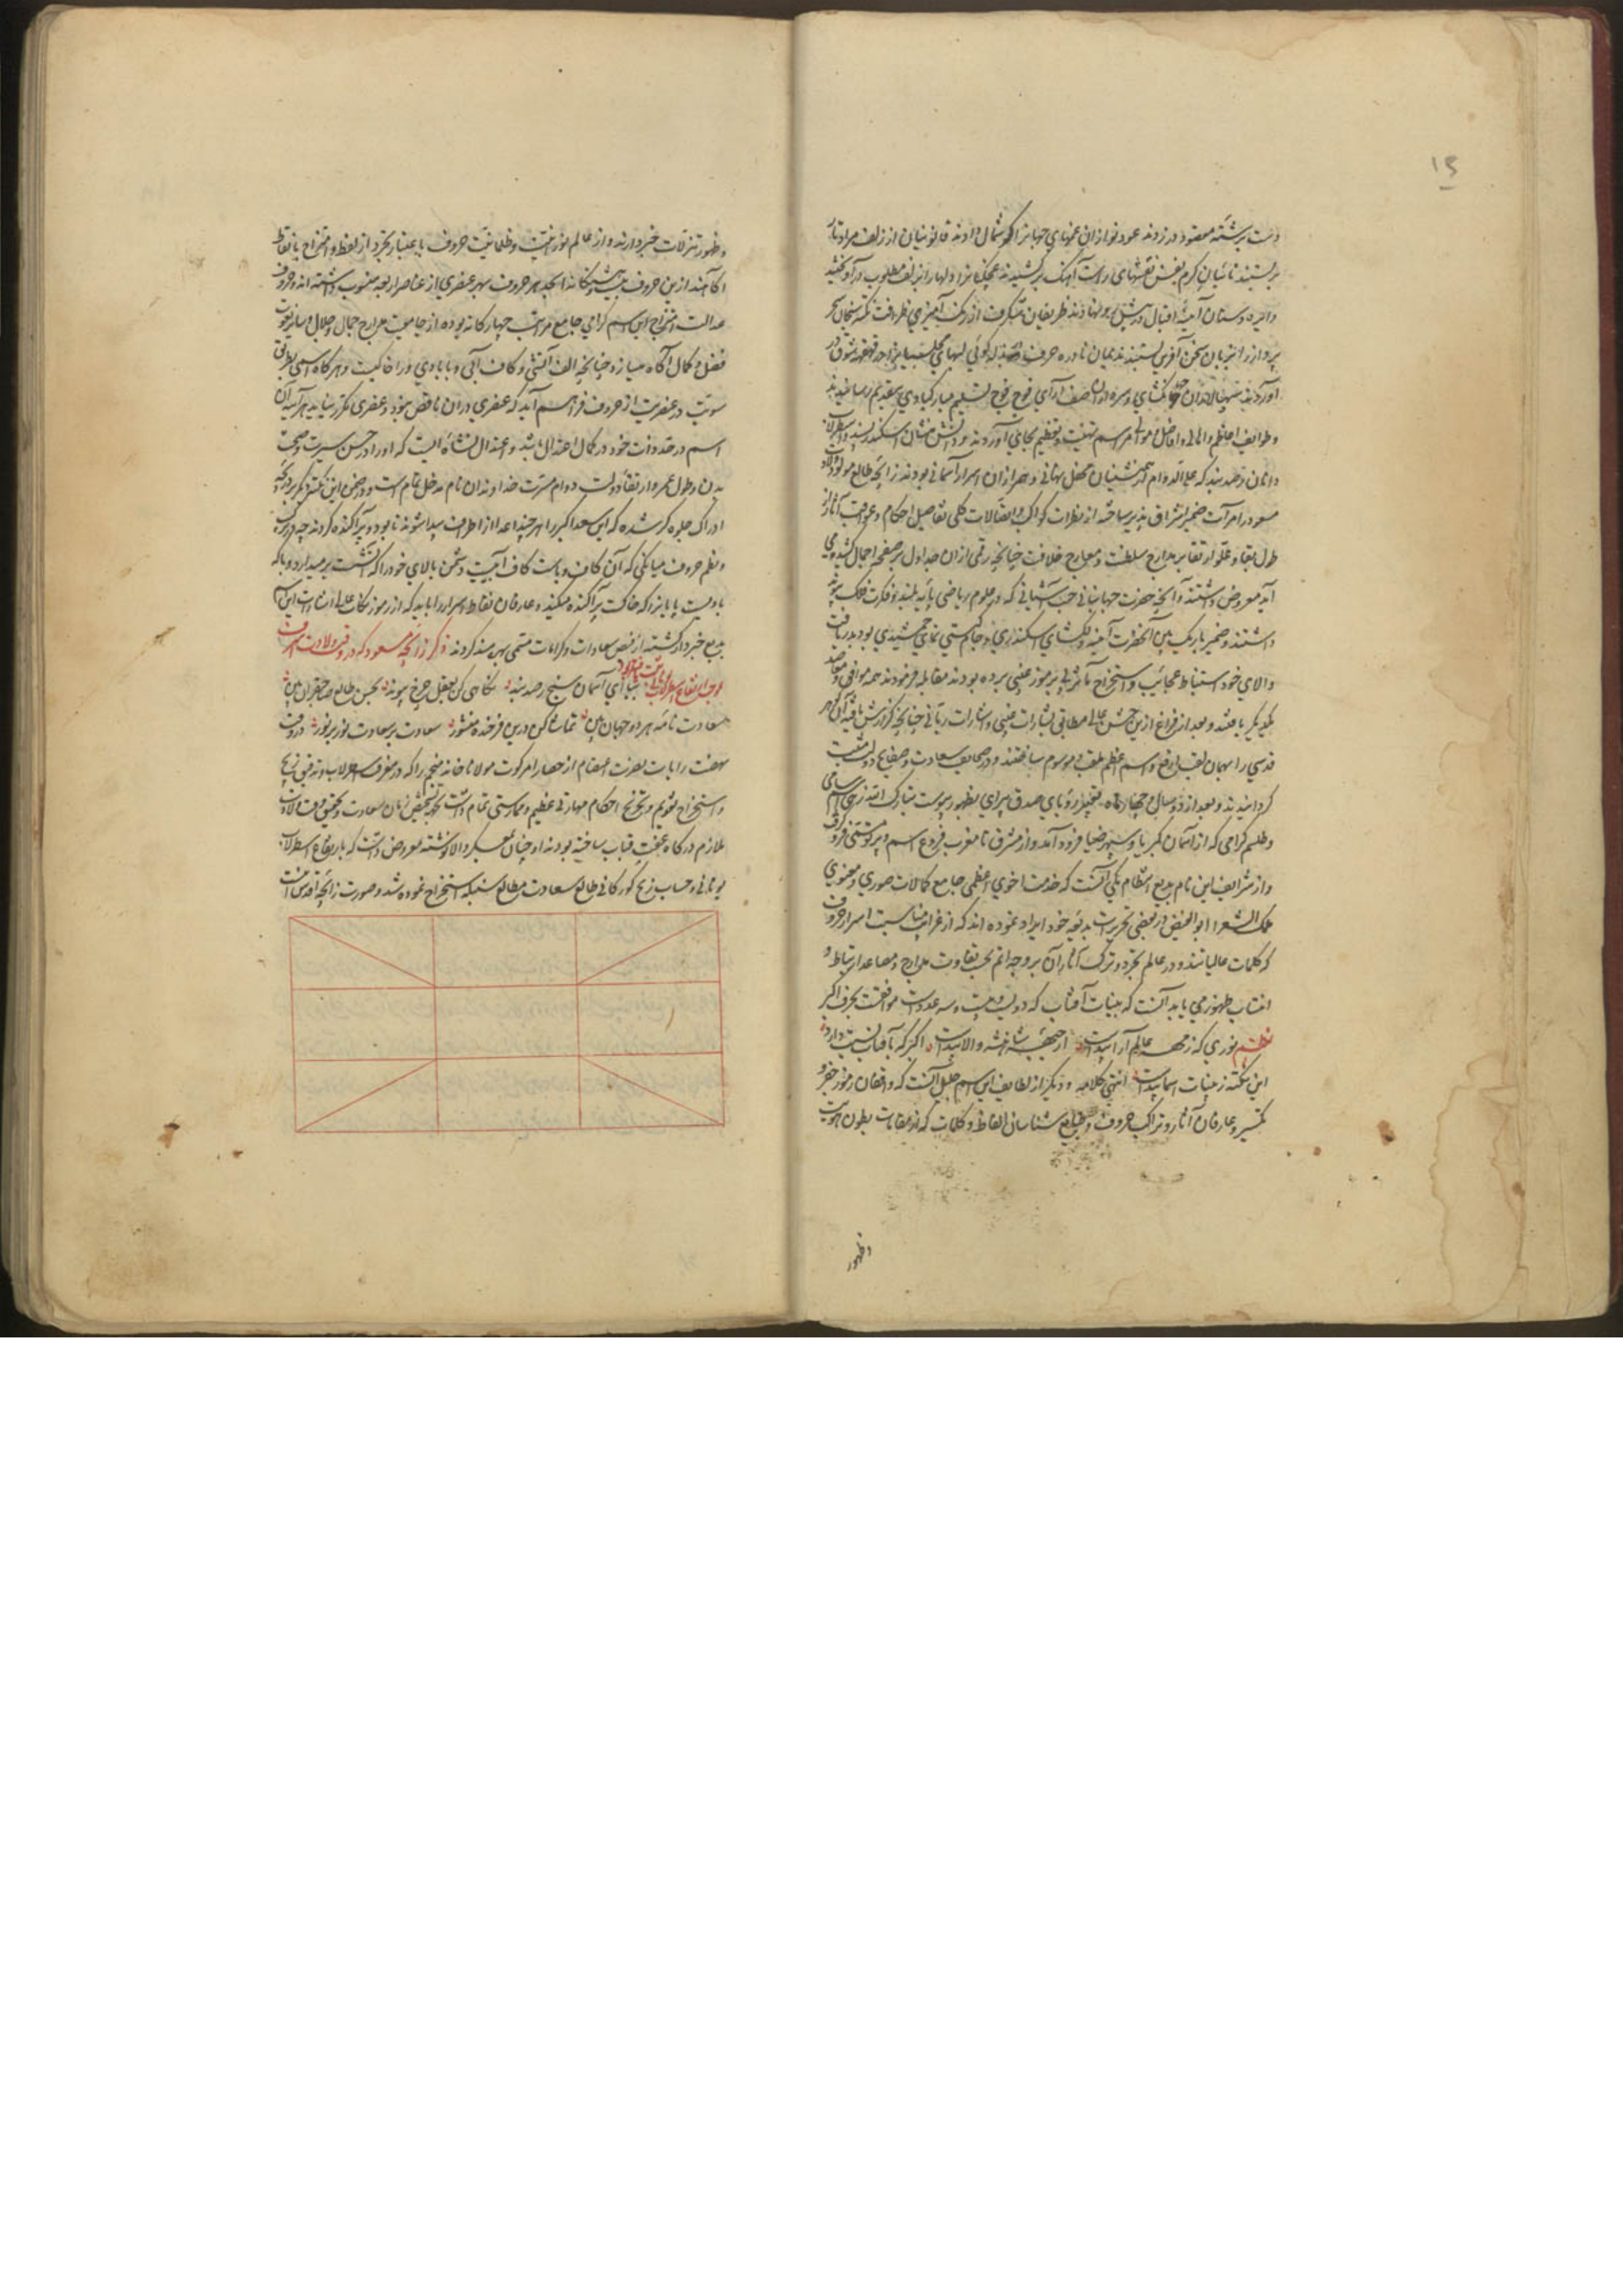 ۱۵
دست برشته مقصود در زدند عود نوازان غمهای جهانرا گوشمال دادند قانونیان از زلف مراد تار
بربستند نائیان کرم نفس نقشهای راست آهنگ برکشیدند
دایره دستان آینهٔ اقبال در پیش رو نهادند ظریفان شگرف از رنگ آمیزی ظرافت نکته سنجان سحر
پرداز را بزبان سخن آفرین بستند ندیمان نادره حرف
آوردند سپهسالاران صف آرای فوج فوج تسلیم مبارکبادی بتقدیم رسانیدند
و طوایف اعاظم و اهالی و افاضل و موالی مراسم تهنیت و تعظیم بجای آوردند و دانش منشان اسکندر پسند و اسطرلاب
دانان رصد بند که علی الدوام همنشینان محفل نهانی و همرازان اسرار آسمانی بودند زایچهٔ طالع مولود ولادت
مسعود را مرآت ضمیر اشراق پذیر ساخته از نظرات کواکب و اتصالات کلی تفاصیل احکام و عواقب آثار از
طول بقا و علو ارتقا بر مدارج سلطنت و معارج خلافت چنانچه رقمی از ان جداول بر صفحه اجمال کشیده می
آید معروض داشتند و آنچه حضرت جهانبانی جنت آشیانی که در علوم ریاضی پایهٔ بلند و فکرت فلک پیوند
داشتند و ضمیر باریک بین آنحضرت آینهٔ دلگشای اسکندری و جام گیتی نمای جمشیدی بود بدریافت
والای خود استنباط عجایب و استخراج مآثر پی بر رموز غیبی برده بودند مقابله فرمودند همه موافق و معاضد
یکدیگر یافتند و بعد از فراغ ازین جشن عالی مطابق بشارات غیبی و اشارات ربانی چنانچه گزارش یافته آن گوهر
قدسی را بهمان لقب ارفع و اسم اعظم ملقب و موسوم ساختند و در صحایف سعادت و صفایح دولت مثبت
گردانیدند و بعد از دو سال و چهار ماه تعبیر رؤیای صدق پیرای بظهور پیوست تبارک الله زهی اسم سامی
و طلسم گرامی که از آسمان کبریا و سپهر ضیا فرود آمد و از مشرق تا مغرب فروغ اسم و پرتو مسمی فرو گرفت
و از شرایف این نام بدیع انتظام یکی آنست که خدمت اخوی اعظمی جامع کمالات صوری و معنوی
ملک الشعرا ابو الفیض در بعضی تحریرات بدیعه خود ایراد نموده اند که از غرایب مناسبت اسرار حروف
که کلمات عالیاتند و در عالم تجرد و ترکب آثار آن بر وجه اتم بحسب تفاوت مدارج و مصاعد ارتباط و
انتساب ظهور می یابد آنست که بینات آفتاب که دویست و بیست و سه عدد است موافقست بحرف اکبر
نظم نوری که ز مهر عالم آرا پیداست از جبههٔ شاهنشه والا پیداست اکبر که بآفتاب نسبت دارد
این نکته ز بینات اسما پیداست انتهی کلامه و دیگر از لطایف این اسم جلیل آنست که واقفان رموز جفر و
تکسیر و عارفان آثار و تراکیب حروف و طبایع شناسان الفاظ و کلمات که از مقامات بطون هویت
وظهور
وظهور تنزلات خبردارند و از عالم نورانیت و ظلمانیت حروف باعتبار تجرد از لفظ و امتزاج با نقاط
آگاهند ازین حروف بیست و هشتگانه ابجد هر حروف بهر عنصری از عناصر اربعه منسوب داشته اند و حروف
عدالت امتزاج این اسم گرامی جامع مراتب چهارگانه بوده از جامعیت مدارج جمال و جلال و سایر نعوت
فضل و کمال آگاه میسازد چنانچه الف آتشی و کاف آبی و با بادی و را خاکیست و هرگاه اسمی بطریق
سویت در عنصریت از حروف فراهم آید که عنصری دران ناقص نبود و عنصری مکرر نیاید هر آینه آن
اسم در حد ذات خود در کمال اعتدال باشد و اعتدال نشاه ایست که او را در حسن سیرت و صحت
بدن و طول عمر و ارتقا دولت و دوام مسرت خداوند آن نام مدخل تمام است و در ضمن این نکته دیگر بر دریچهٔ
ادراک جلوه گر شده که این سعد اکبر را هر چند اعدا از اطراف پیدا شوند نابود و پراکنده گردند چه در ترکیب
و نظم حروف میانگی که آن کاف و باست کاف آبیست دشمن بالای خود را که آتشست برمیدارد و با که
بادیست پایانرا که خاکست پراکنده میکند و عارفان نقاط و اسرار را باید که از رموز نکات عالی اشارت این اسم
بدیع خبردار گشته از فیض سعادات و کرامات مسمی بهره مند گردند ذکر زایچه مسعود که در وقت ولادت اشرف
بموجب ارتفاع اسطرلاب ثبت افتاد بیا ای آسمان سنج رصد بند نگاهی کن بعقل چرخ پیوند بحسن طالع صاحبقران بین
سعادت نامهٔ هر دو جهان بین تماشا کن درین فرخنده منشور سعادت بر سعادت نور بر نور در وقت
نهضت رایات نصرت اعتصام از حصار امرکوت مولانا چاند منجم را که در معرفت اسطرلاب و تدقیق زیج
و استخراج تقویم و تخریج احکام مهارتی عظیم و ممارستی تمام داشت بجهة تشخیص زمان سعادت و تحقیق وقت ولادت
ملازم درگاه عفت قباب ساخته بودند او چنان بمعسکر والا نوشته معروض داشت که بارتفاع اسطرلاب
یونانی و حساب زیج گورکانی طالع سعادت مطالع سنبله استخراج نموده شد و صورت زایچه اقدس اینست